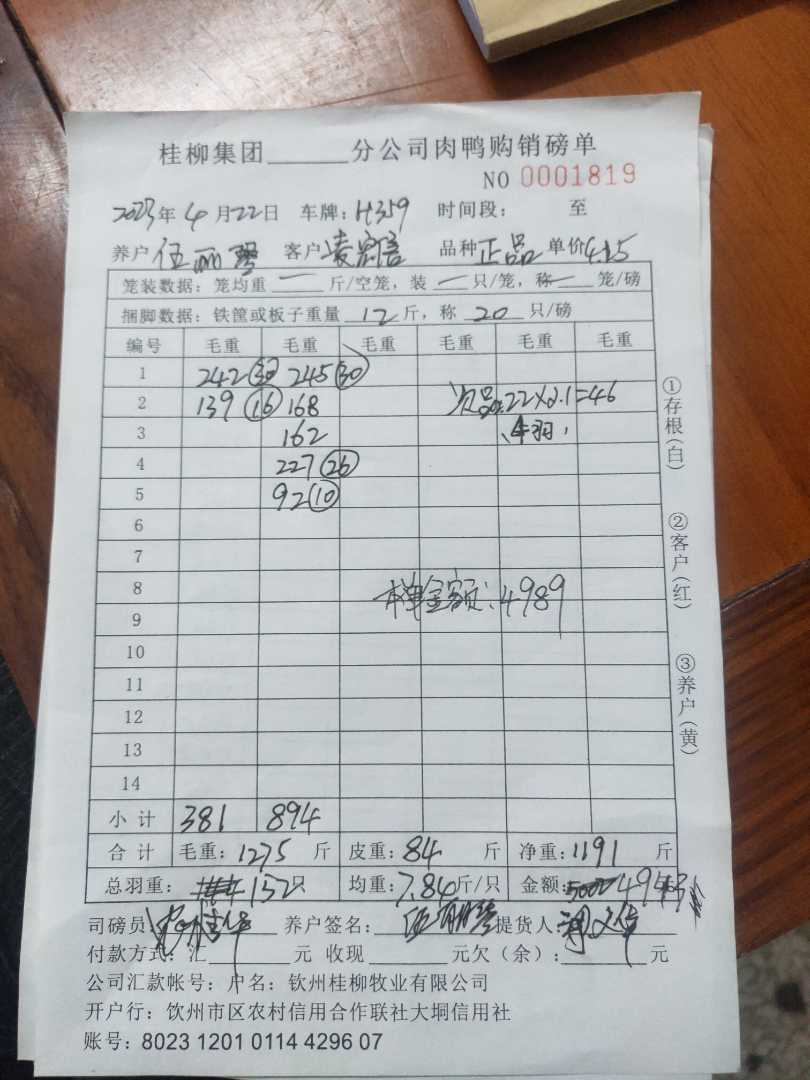 桂柳集团______分公司肉鸭购销磅单
NO 0001819
2023年4月22日 车牌：H359 时间段： 至
养户伍丽琴 客户凌 信 品种正品 单价4.15
笼装数据：笼均重 一 斤/空笼，装 一 只/笼，称一 笼/磅
捆脚数据：铁筐或板子重量 12 斤，称 20 只/磅
编号 毛重 毛重 毛重 毛重 毛重 毛重
1 242 30 245 30
2 139 16 168 次品 22×2.1=46
3 162 4羽
4 227 26
5 92 10
6
7
8 本单金额：4989
9
10
11
12
13
14
小计 381 894
合计 毛重：1275 斤 皮重：84 斤 净重：1191 斤
总羽重： 152只 均重：7.84斤/只 金额：
司磅员： 养户签名：伍丽琴 提货人：
付款方式：汇______元 收现______元欠（余）：______元
公司汇款帐号：户名：钦州桂柳牧业有限公司
开户行：饮州市区农村信用合作联社大垌信用社
账号：8023 1201 0114 4296 07
①存根(白)
②客户(红)
③养户(黄)